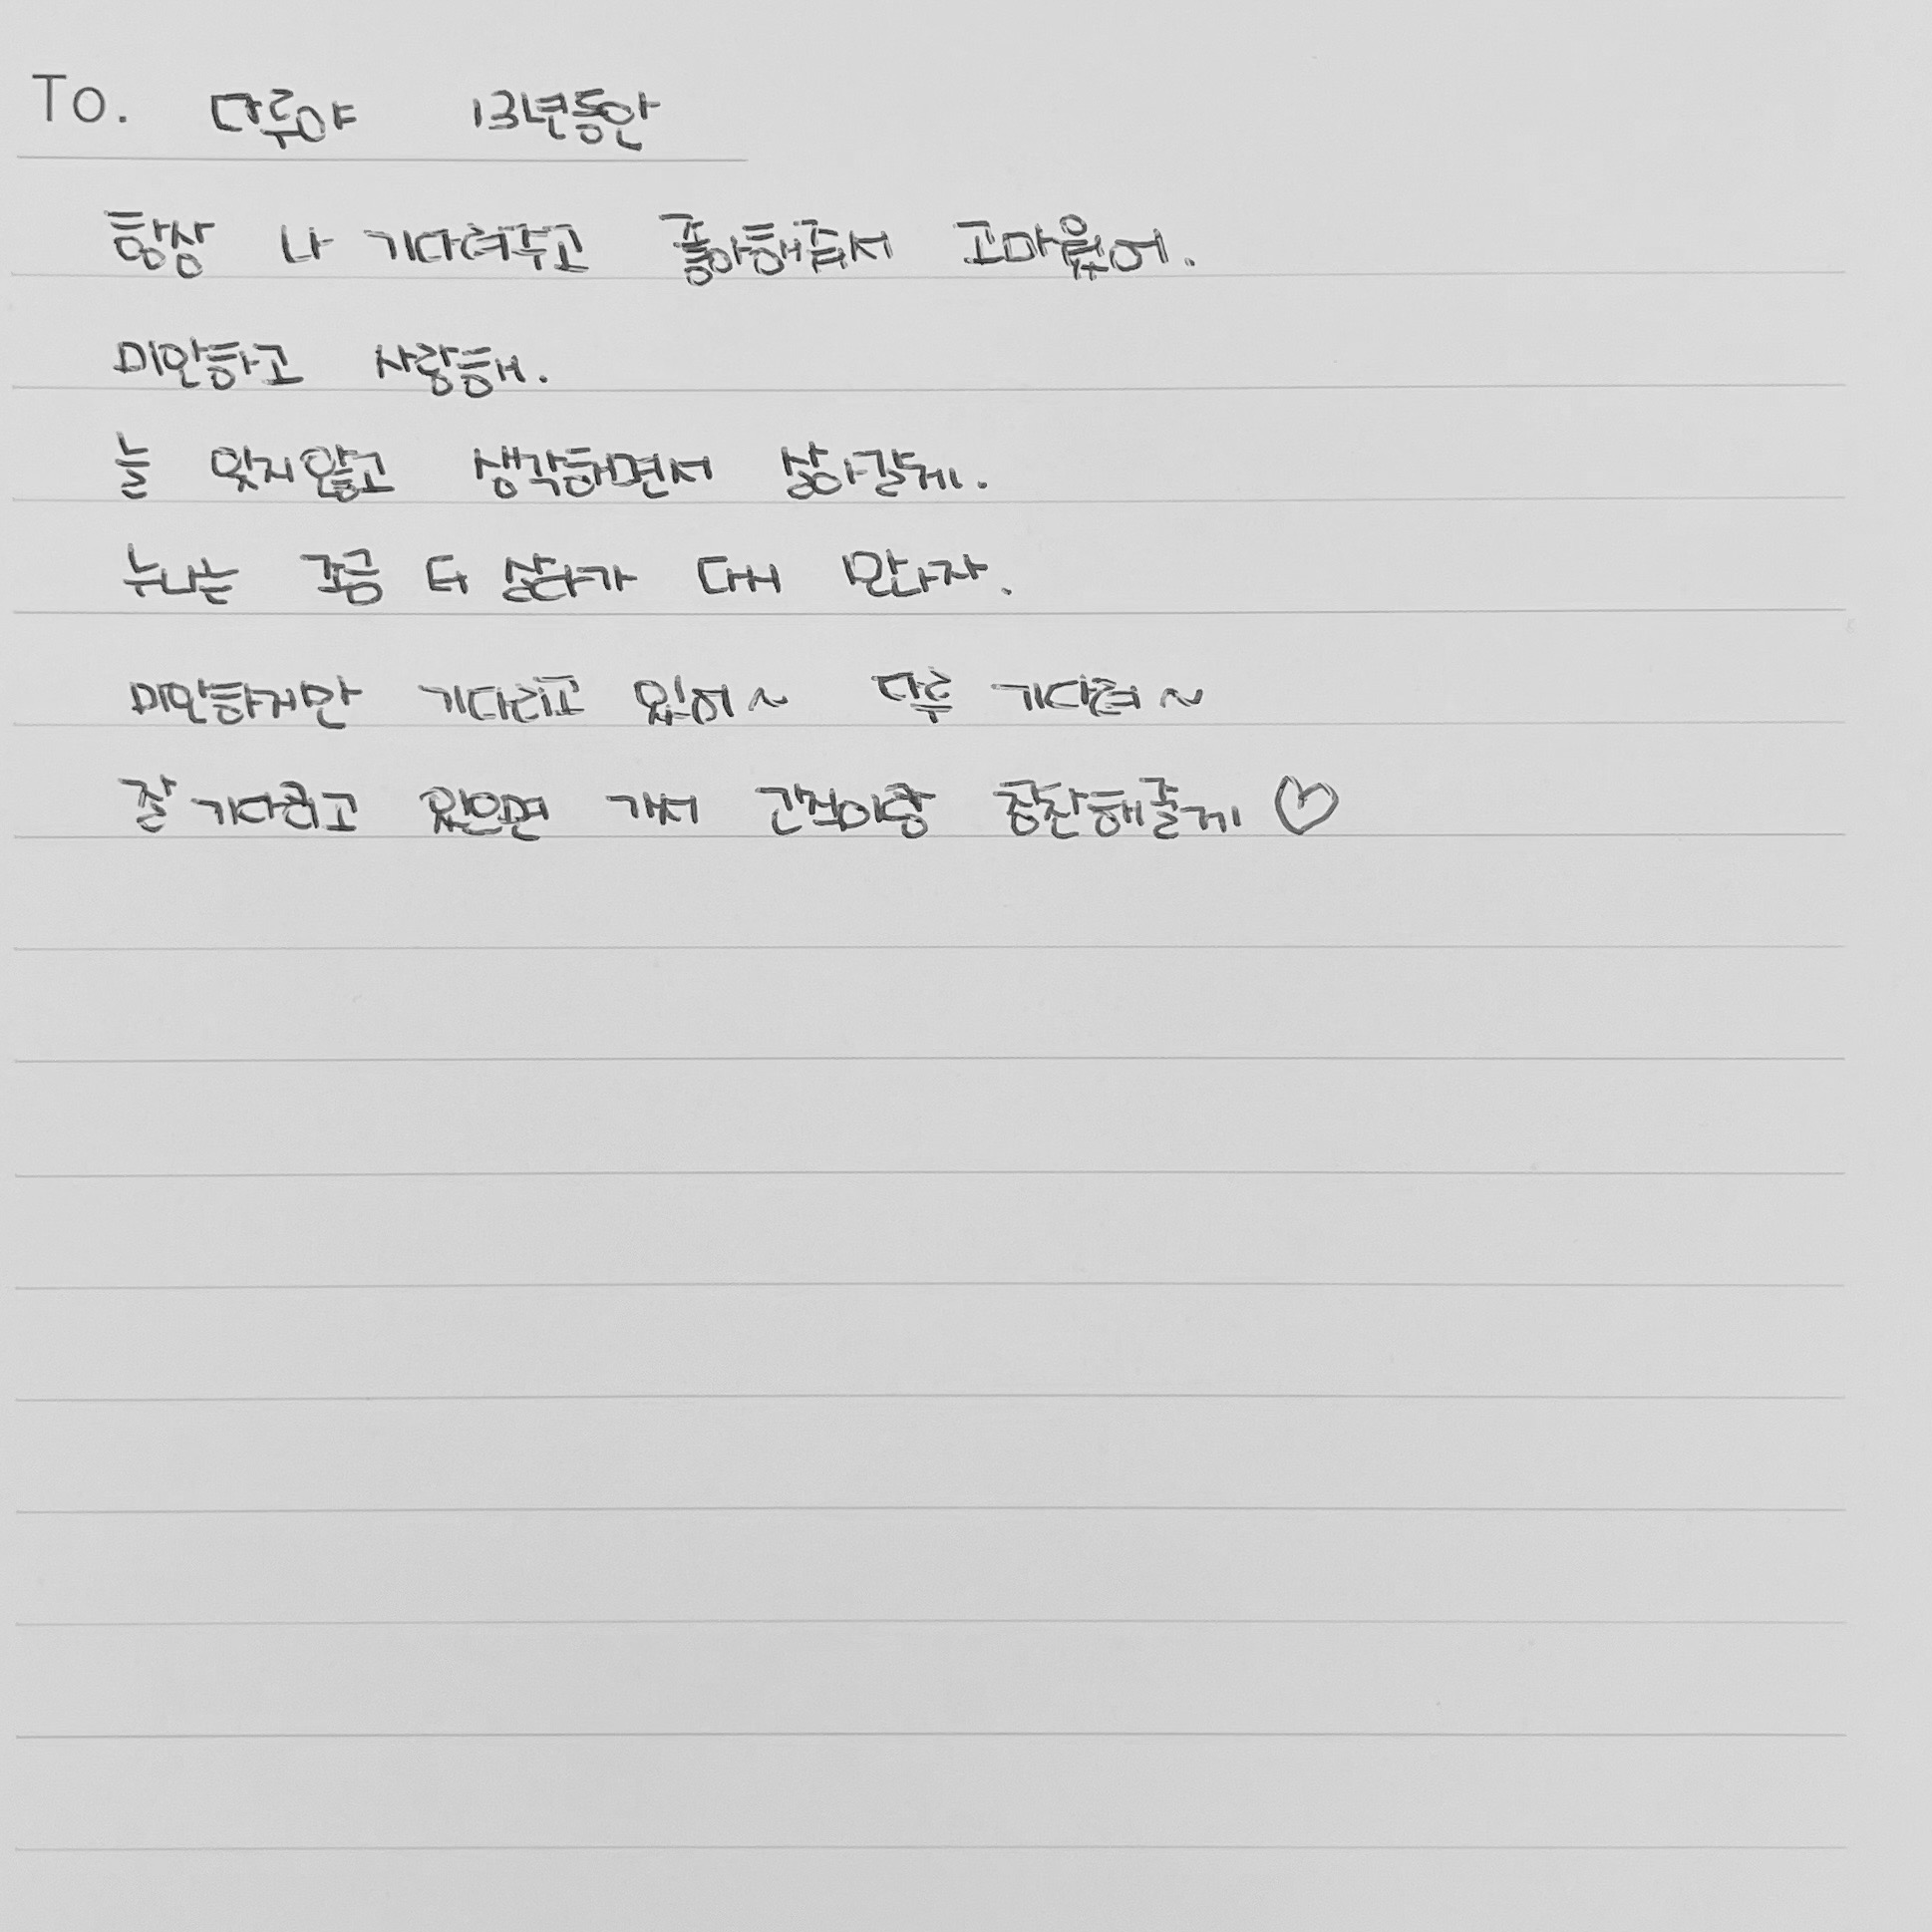 To. 다루야 13년동안
항상 나 기다려주고 좋아해줘서 고마웠어.
미안하고 사랑해.
늘 잊지않고 생각하면서 살아갈게.
누나는 조금 더 살다가 다시 만나자.
미안하지만 기다리고 있어~ 다루 기다려~
잘 기다리고 있으면 가서 간식이랑 칭찬해줄게 ♡